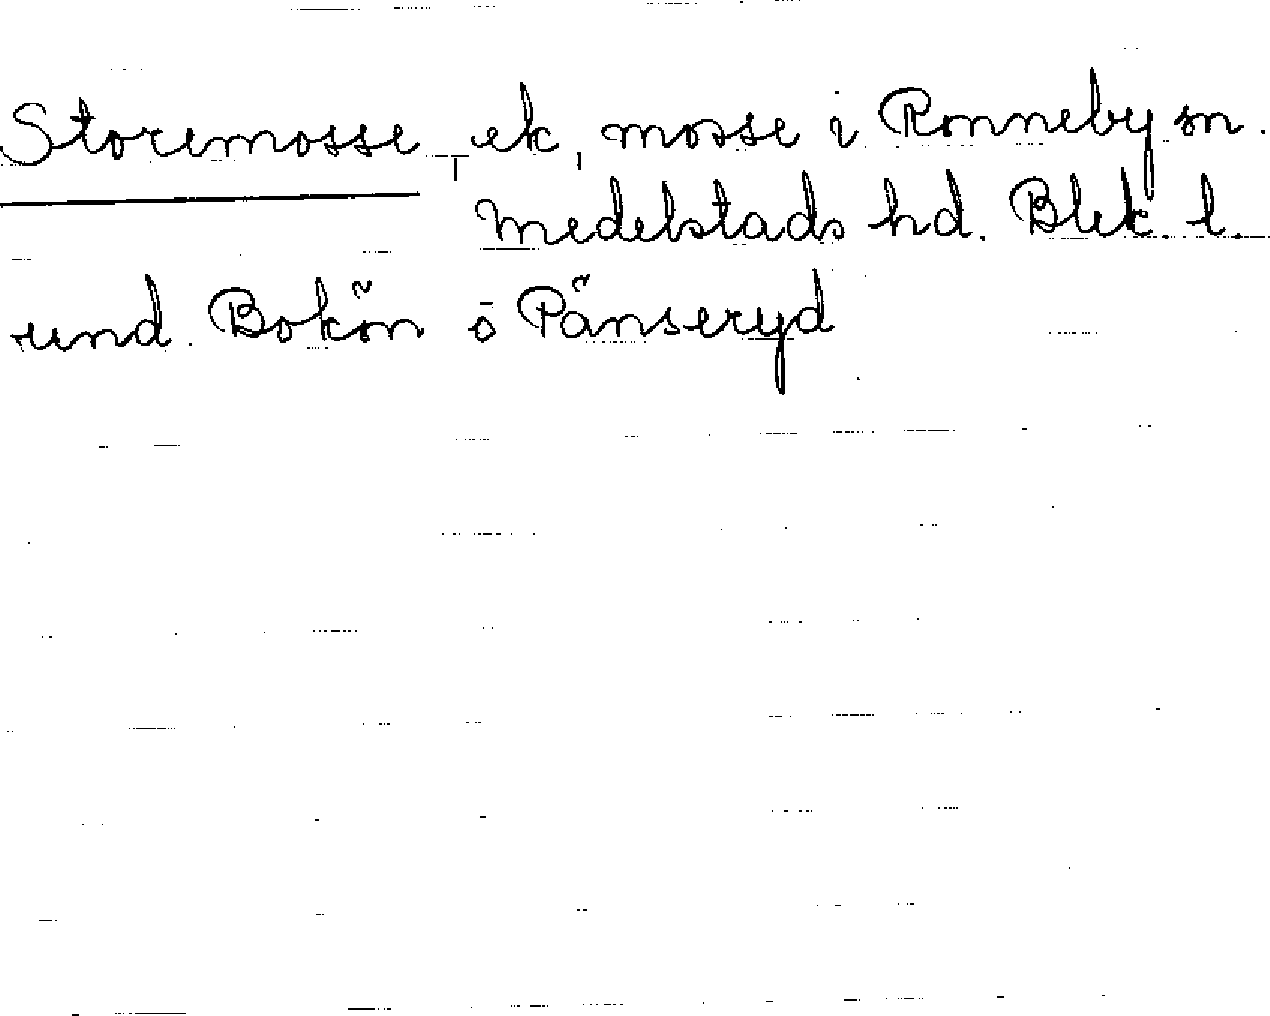 Storemosse, ek, mosse i Ronneby sn.
Medelstads hd. Blek. l.
und. Bokön o Pånseryd